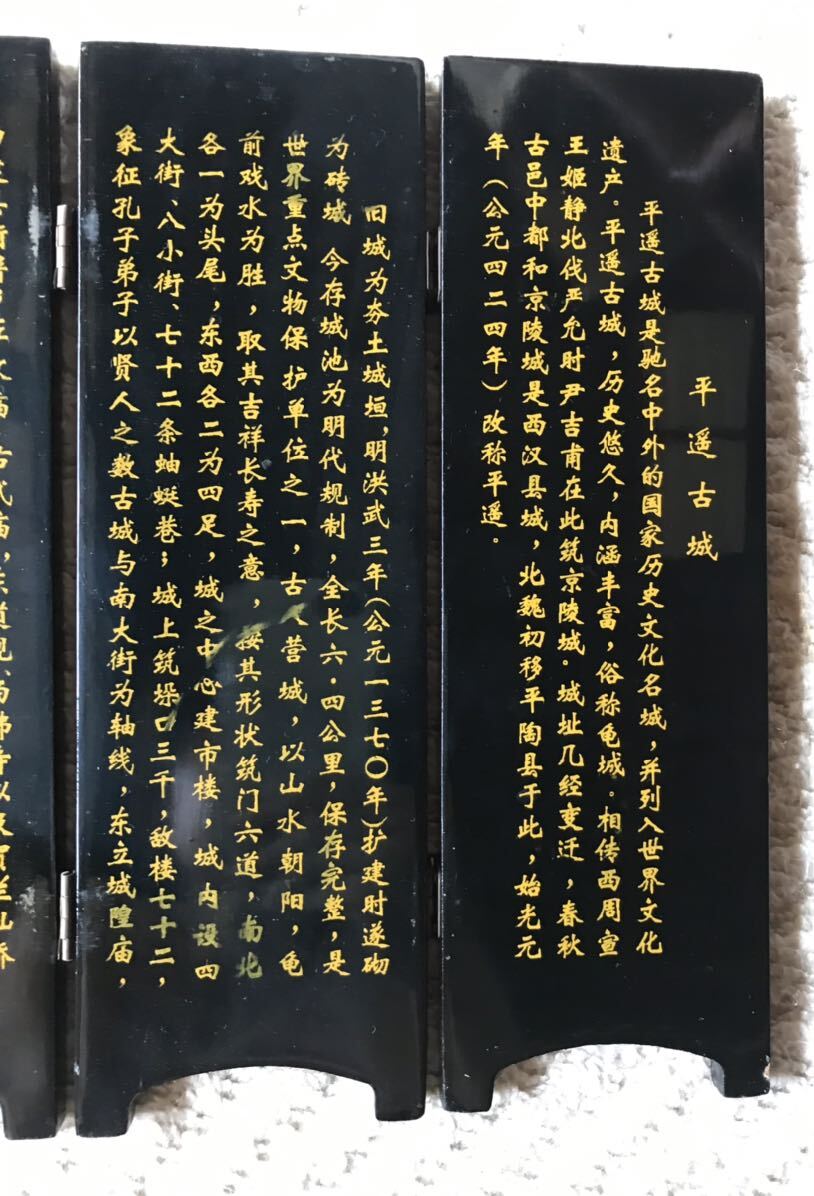 平遥古城
平遥古城是驰名中外的国家历史文化名城，并列入世界文化
遗产。平遥古城，历史悠久，内涵丰富，俗称龟城。相传西周宣
王姬静北伐严允时尹吉甫在此筑京陵城。城址几经变迁，春秋
古邑中都和京陵城是西汉县城，北魏初移平陶县于此，始光元
年（公元四二四年）改称平遥。
旧城为夯土城垣，明洪武三年(公元一三七〇年)扩建时遂砌
为砖城 今存城池为明代规制，全长六·四公里，保存完整，是
世界重点文物保护单位之一，古人营城，以山水朝阳，龟
前戏水为胜，取其吉祥长寿之意，按其形状筑门六道，南北
各一为头尾，东西各二为四足，城之中心建市楼，城内设四
大街、八小街、七十二条蚰蜒巷；城上筑垛口三千，敌楼七十二，
象征孔子弟子以贤人之数古城与南大街为轴线，东立城隍庙，